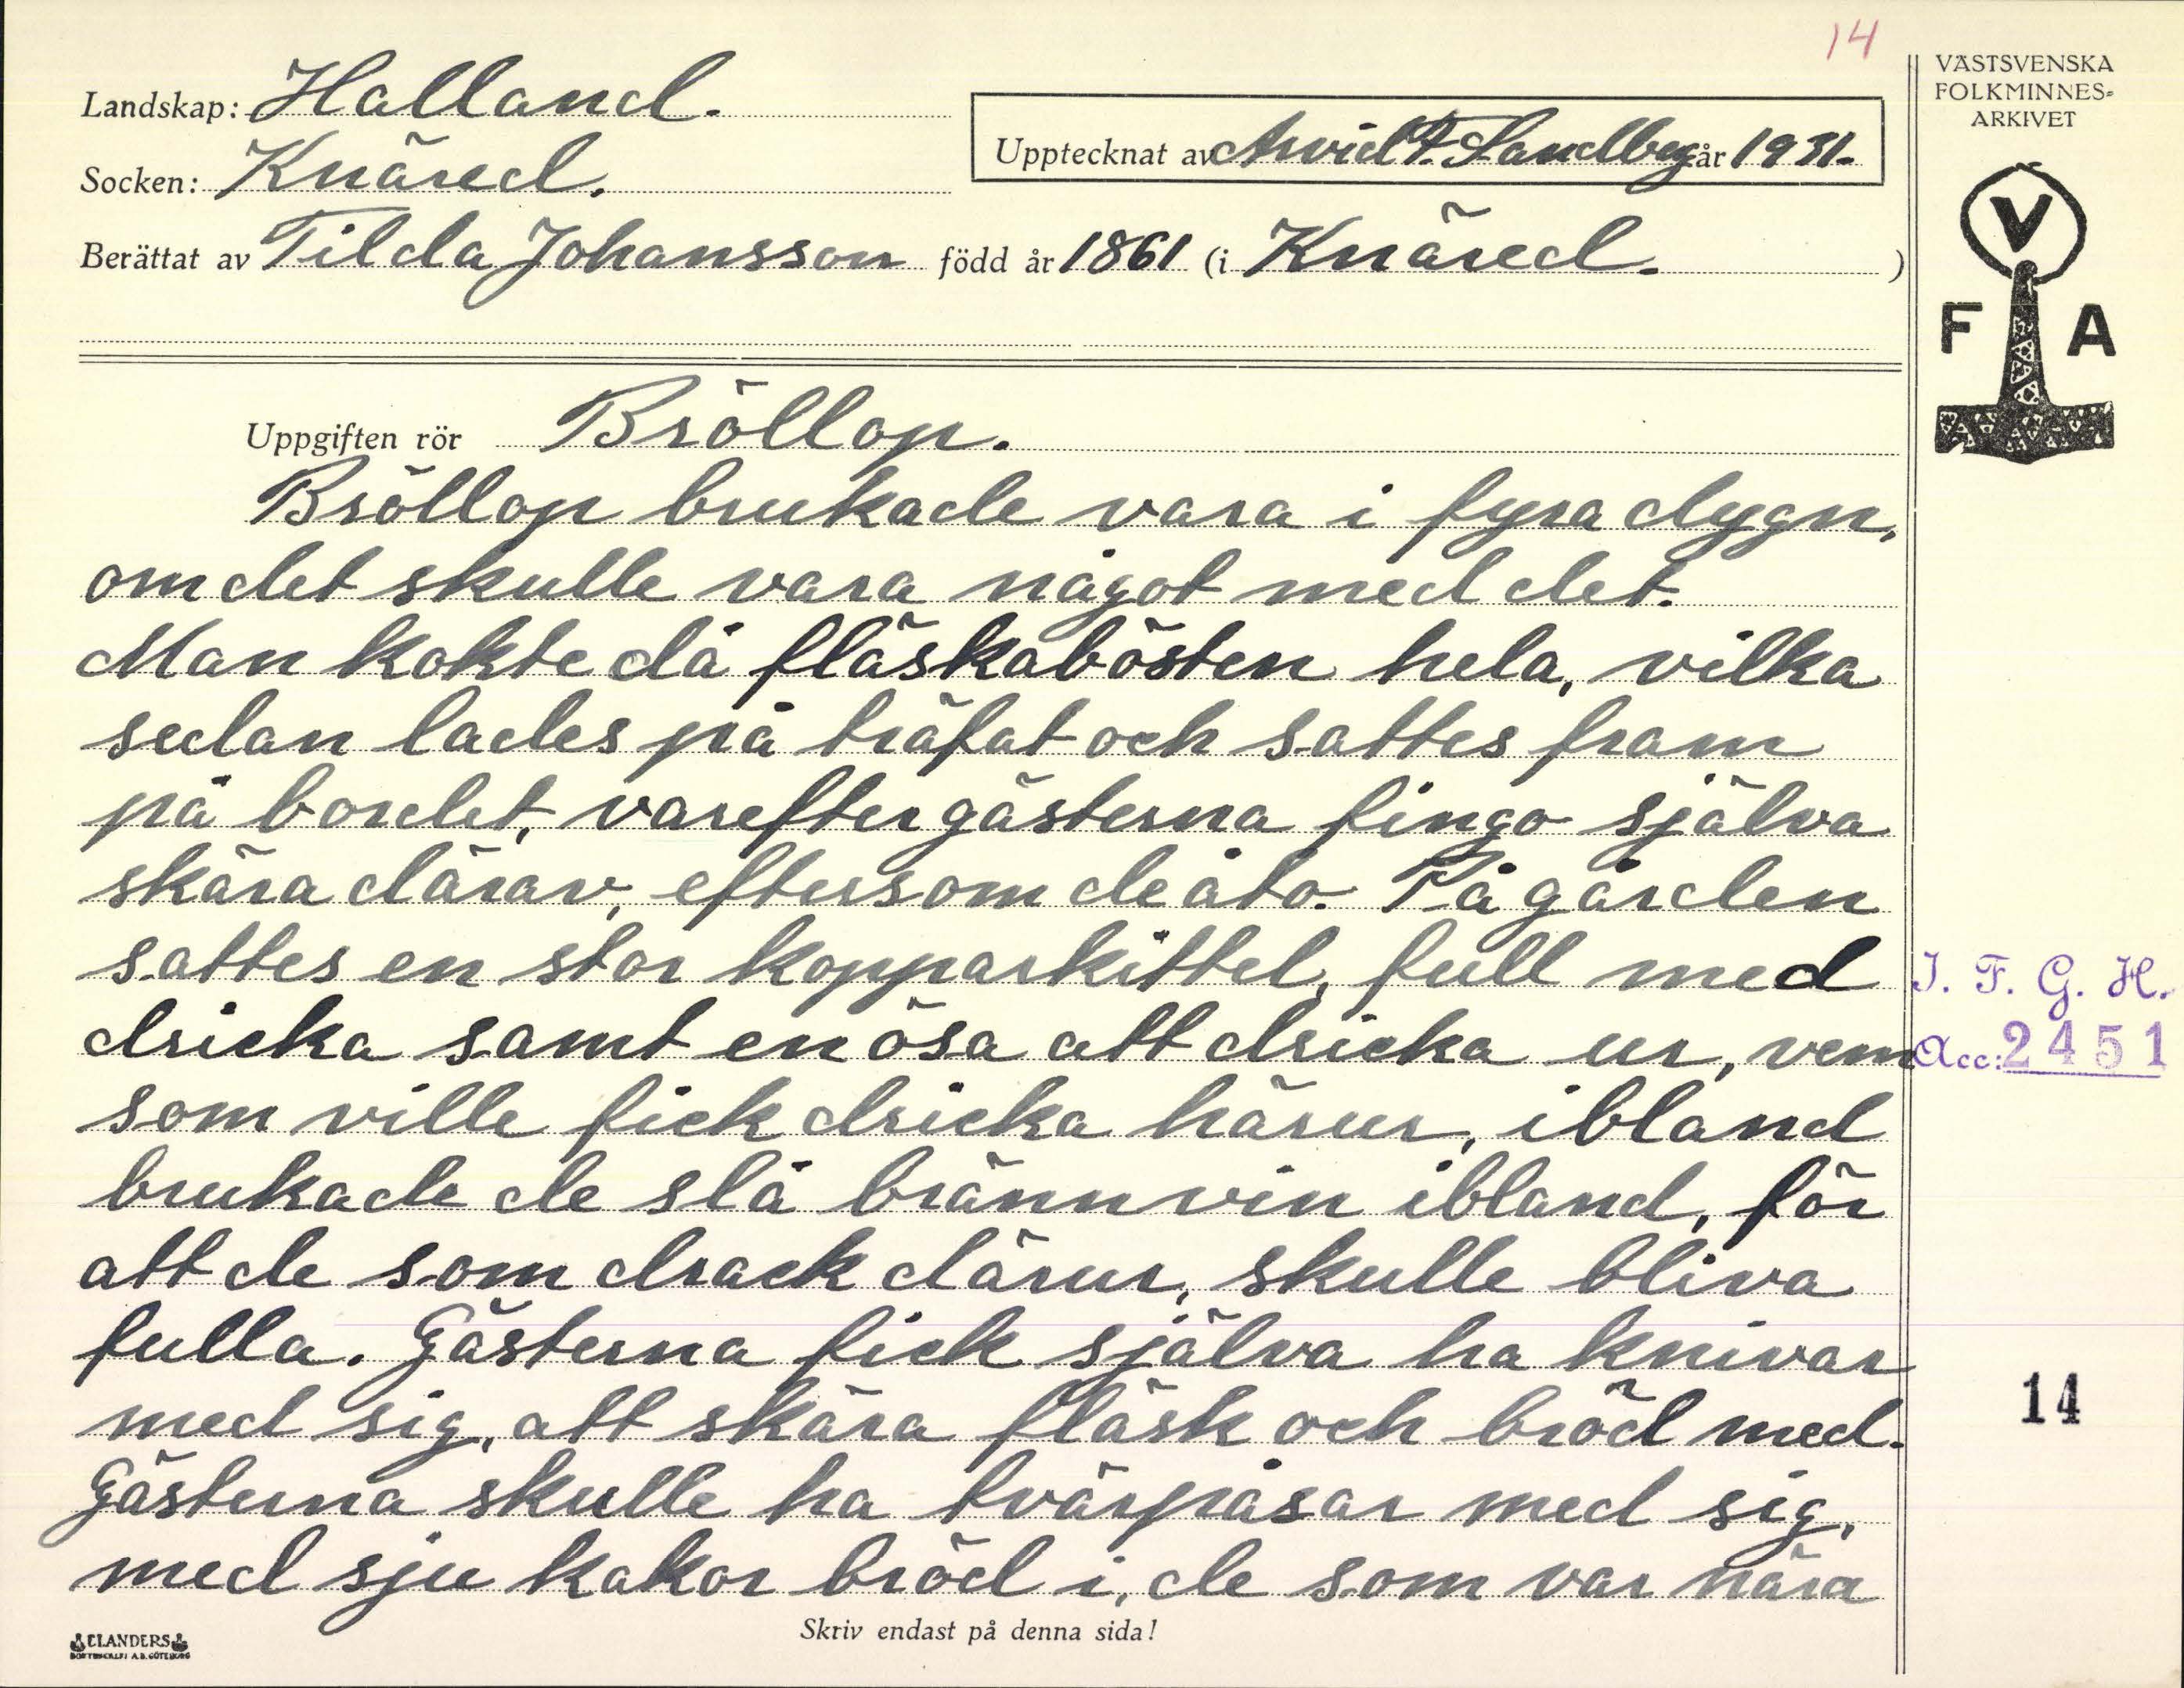 14
Landskap: Halland.
Socken: Knäred.
Upptecknat av Arvid P. Sandberg år 1931.
Berättat av Tilda Johansson född år 1861 (i Knäred. )
VÄSTSVENSKA
FOLKMINNES-
ARKIVET
V
F A
Uppgiften rör Bröllop.
Bröllop brukade vara i fyra dygn,
om det skulle vara något med det.
Man kokte då fläskabösten hela, vilka
sedan lades på träfat och sattes fram
på bordet, varefter gästerna fingo själva
skära därav, eftersom de åto. På gården
sattes en stor kopparkittel, full med
dricka samt en ösa att dricka ur, vem
som ville fick dricka härur, ibland
brukade de slå brännvin ibland, för
att de som drack därur, skulle bliva
fulla. Gästerna fick själva ha knivar
med sig, att skära fläsk och bröd med.
Gästerna skulle ha tvärpåsar med sig,
med sju kakor bröd i, de som var nära
I. F. G. H.
Acc: 2451
14
Skriv endast på denna sida!
ELANDERS
BOKTRYCKERI A.B. GÖTEBORG